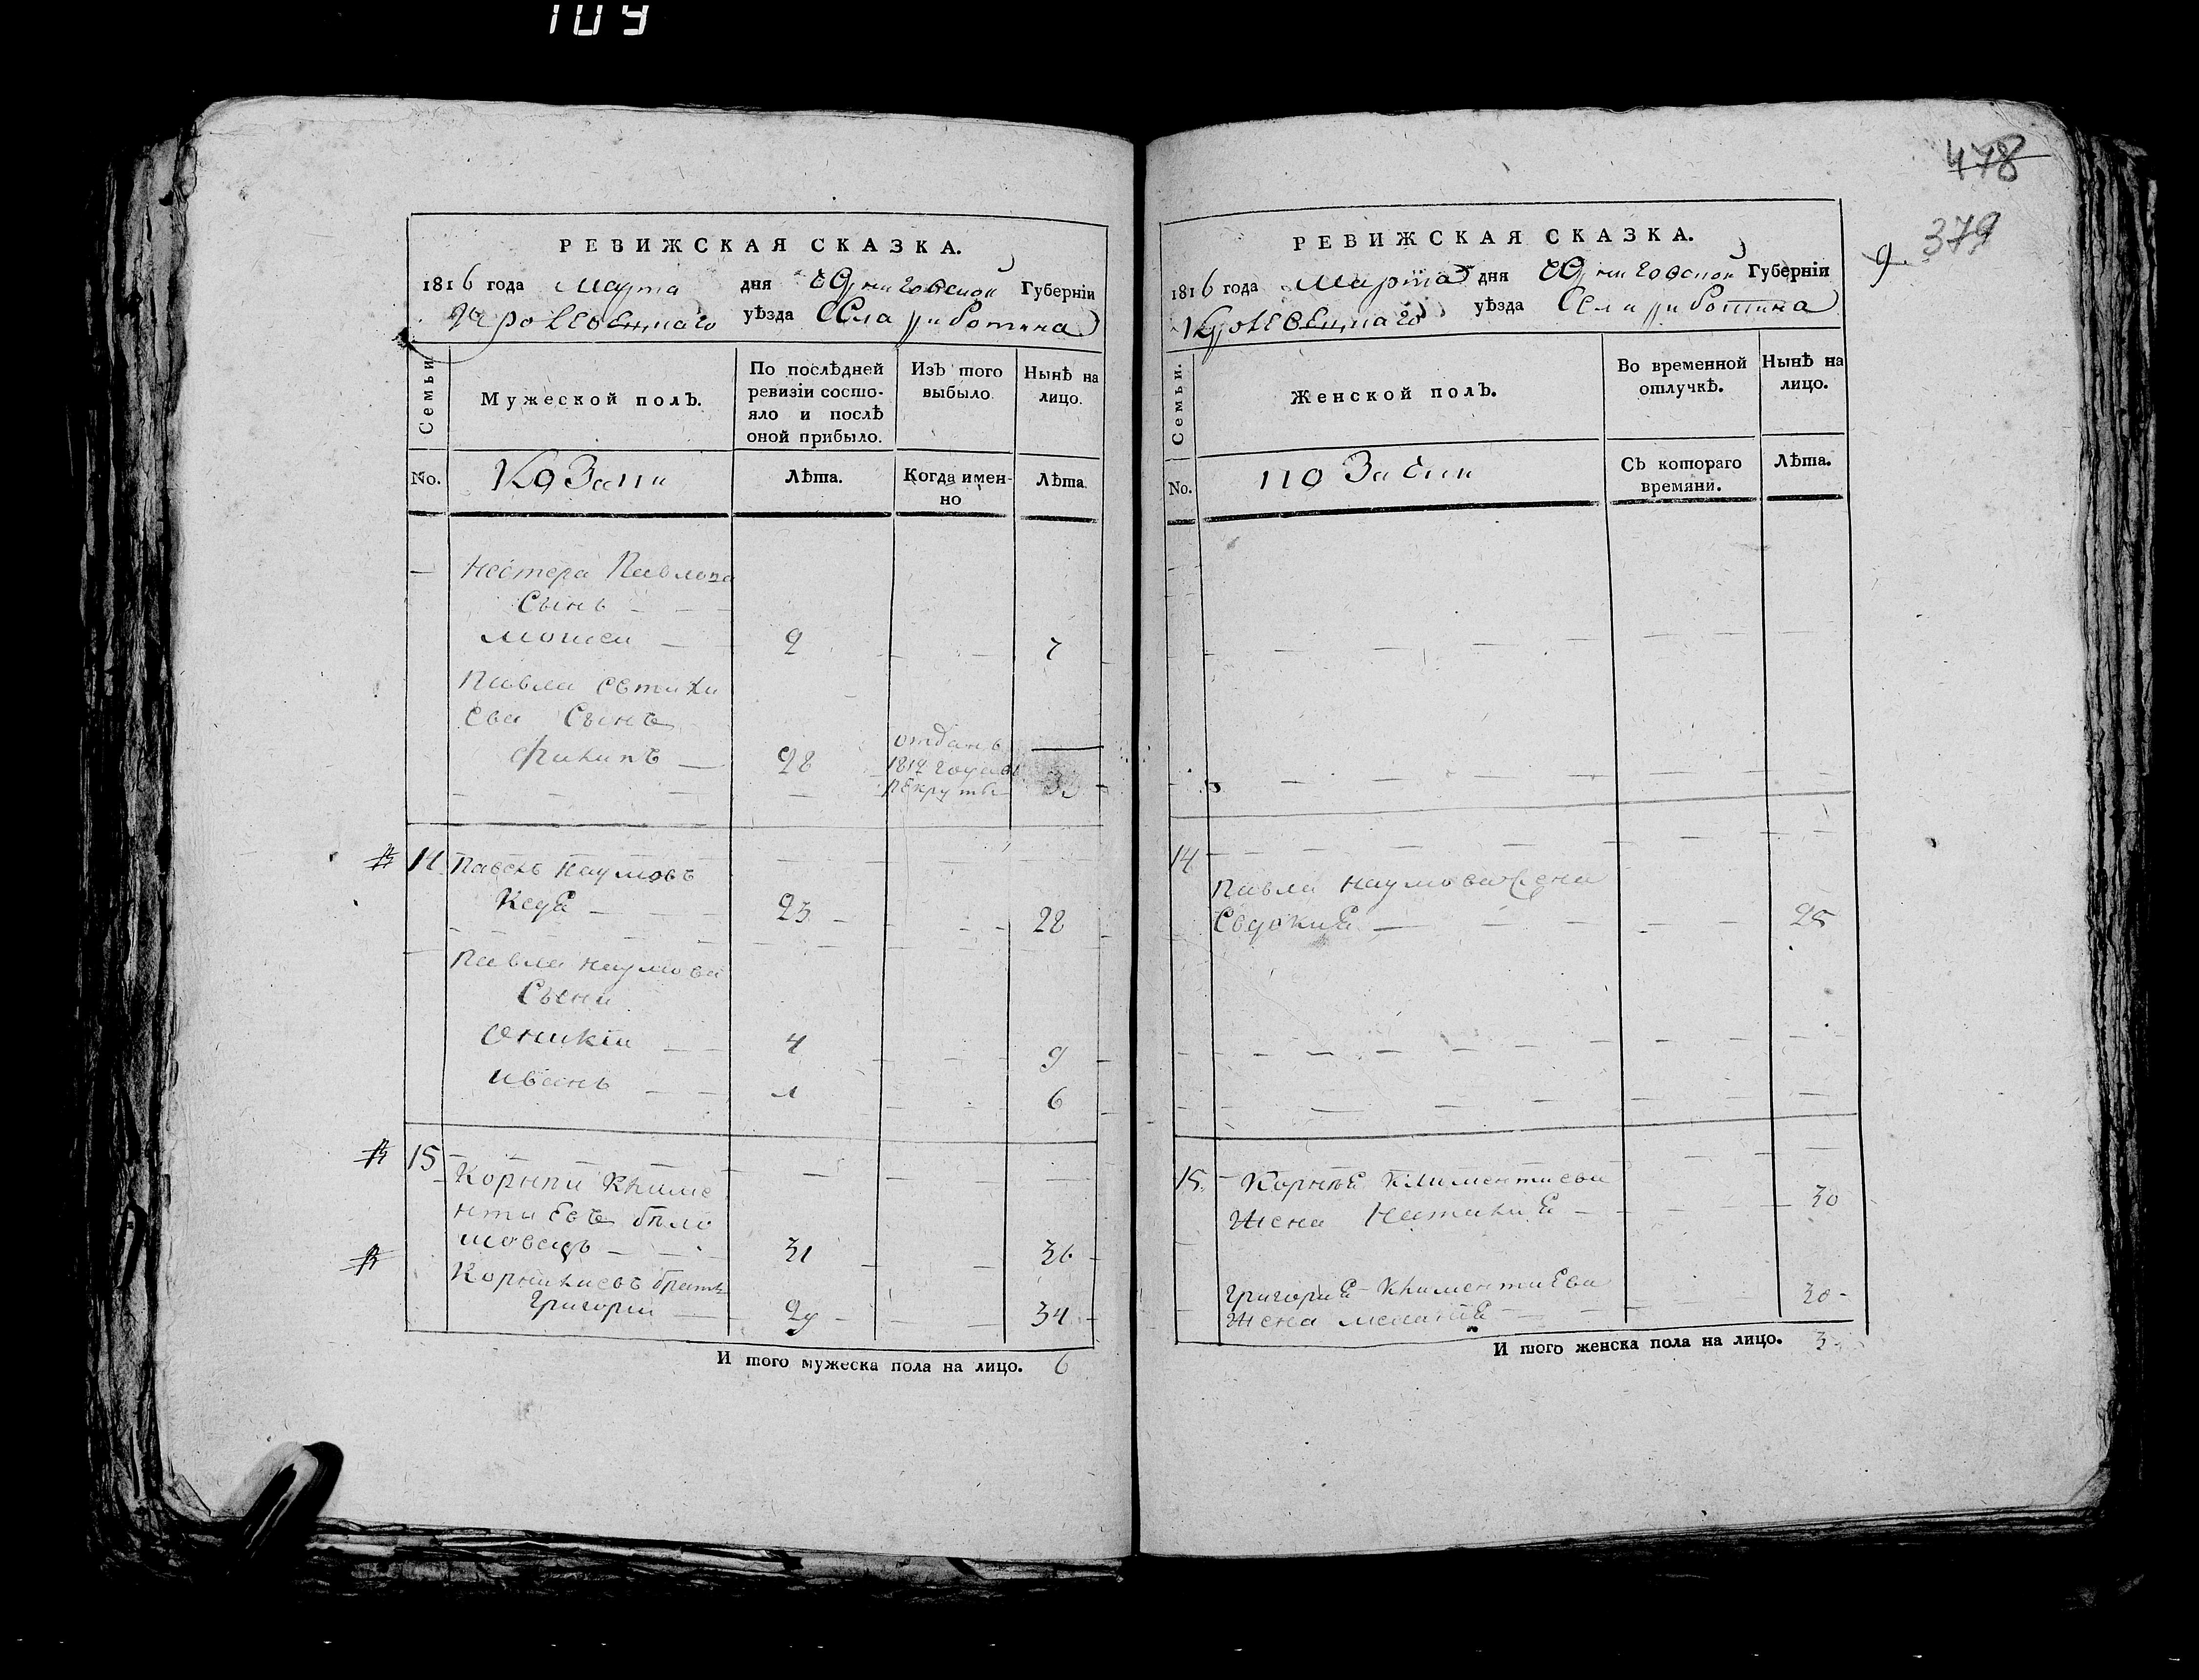 109
478
379
9.
РЕВИЖСКАЯ СКАЗКА.
1816 года Марта дня Губерніи
Кролевецкаго уѣзда Села
Семьи
Мужеской полъ.
По послѣдней
ревизіи состо-
яло и послѣ
оной прибыло.
Изъ того
выбыло.
Нынѣ на
лицо.
No.
Козаки
Лѣта.
Когда имен-
но
Лѣта.
Нестера Павлова
Сынъ
Моисеи 2 7
Павла Евтихи
ева Сынъ
Филипъ 28
отданъ
рекруты
14 Павелъ Наумовъ
23 28
Павла Наумова
Сыни
Оникіи 4 9
Иванъ 1 6
15
Корнии Климе
нтиевъ Бѣло
шовецъ 31 36
Корниliевъ братъ
Григории 29 34
И того мужеска пола на лицо. 6
РЕВИЖСКАЯ СКАЗКА.
1816 года Марта дня Губерніи
Кролевецкаго уѣзда Села
Семьи.
Женской полъ.
Во временной
отлучкѣ.
Нынѣ на
лицо.
No.
Козаки
Съ котораго
времяни.
Лѣта.
14
Павла Наумова жена
Евдокия 25
15. Корнѣя Климентиева
Жена Наталия 30
Григория Климентиева
Жена Меланія 30
И того женска пола на лицо. 3